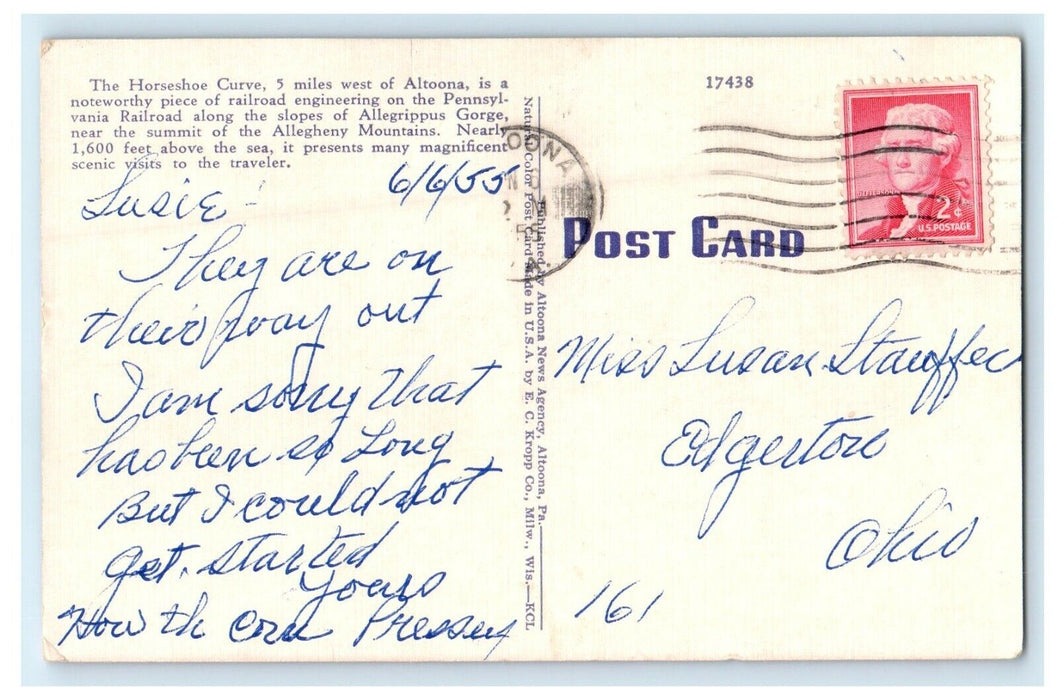 The Horseshoe Curve, 5 miles west of Altoona, is a
noteworthy piece of railroad engineering on the Pennsyl-
vania Railroad along the slopes of Allegrippus Gorge,
near the summit of the Allegheny Mountains. Nearly
1,600 feet above the sea, it presents many magnificent
scenic visits to the traveler.
6/6/55
Susie -
They are on
their way out
I am sorry that
has been so Long
But I could not
get started
Yours
How th corn Pressey
Published by Altoona News Agency, Altoona, Pa.
Natural Color Post Card Made in U.S.A. by E. C. Kropp Co., Milw., Wis.—KCL
17438
OONA
POST CARD
JEFFERSON
2¢
U.S. POSTAGE
Miss Susan Stauffer
Edgerton
Ohio
161